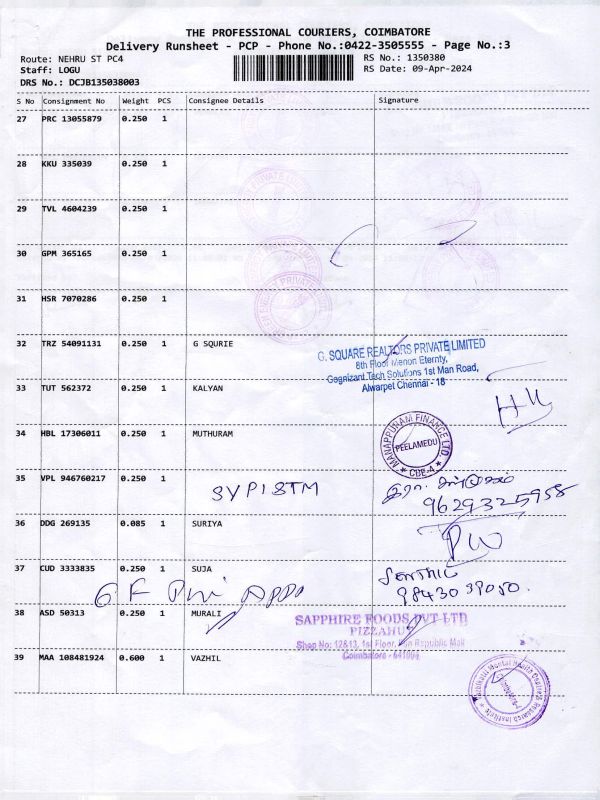 THE PROFESSIONAL COURIERS, COIMBATORE
Delivery Runsheet - PCP - Phone No.:0422-3505555 - Page No.:3
Route: NEHRU ST PC4 RS No.: 1350380
Staff: LOGU RS Date: 09-Apr-2024
DRS No.: DCJB135038003
S No Consignment No Weight PCS Consignee Details Signature
27 PRC 13055879 0.250 1
28 KKU 335039 0.250 1
29 TVL 4604239 0.250 1
30 GPM 365165 0.250 1
31 HSR 7070286 0.250 1
32 TRZ 54091131 0.250 1 G SQURIE
G. SQUARE REALTORS PRIVATE LIMITED
8th Floor Menon Eternty,
Cognizant Tech Solutions 1st Man Road,
Alwarpet Chennai - 18
33 TUT 562372 0.250 1 KALYAN
34 HBL 17306011 0.250 1 MUTHURAM
MANAPPURAM FINANCE LTD
PEELAMEDU
CBE-A
35 VPL 946760217 0.250 1
SYPISTM
9629325958
36 DDG 269135 0.085 1 SURIYA
37 CUD 3333835 0.250 1 SUJA
SENTHIL
9843039050.
38 ASD 50313 0.250 1 MURALI
SAPPHIRE FOODS PVT LTD
PIZZAHUT
Shop No: 12&13, 1st Floor, Republic Mall
Coimbatore - 641004
39 MAA 108481924 0.600 1 VAZHIL